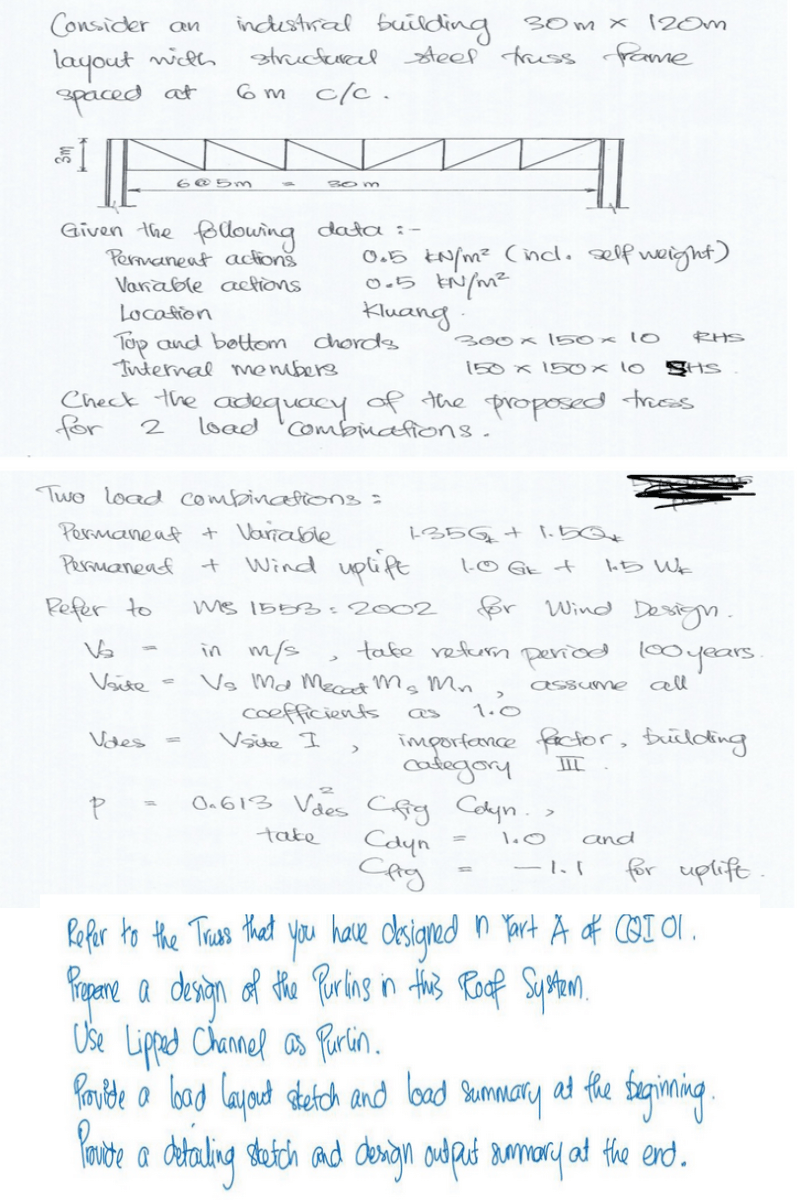 Consider an industrial building 30m x 120m
layout with structural steel truss frame
spaced at 6m c/c.
3m
6@5m = 30m
Given the following data :-
Permanent actions 0.5 kN/m² (incl. self weight)
Variable actions 0.5 kN/m²
Location Kluang.
Top and bottom chords 300 x 150 x 10 RHS
Internal members 150 x 150 x 10 SHS.
Check the adequacy of the proposed truss
for 2 load combinations.
Two load combinations =
Permanent + Variable 1.35Gk + 1.5Qk
Permanent + Wind uplift 1.0 Gk + 1.5 Wk
Refer to MS 1553 : 2002 for Wind Design.
Vs = in m/s, take return period 100 years.
Vsite = Vs Md Mzcat Ms Mh, assume all
coefficients as 1.0
Vdes = Vsite I, importance factor, building
category III.
p = 0.613 Vdes² Cfig Cdyn.,
take Cdyn = 1.0 and
Cfig = -1.1 for uplift.
Refer to the Truss that you have designed in Part A of CQI 01.
Prepare a design of the Purlins in this Roof System.
Use Lipped Channel as Purlin.
Provide a load layout sketch and load summary at the beginning.
Provide a detailing sketch and design output summary at the end.